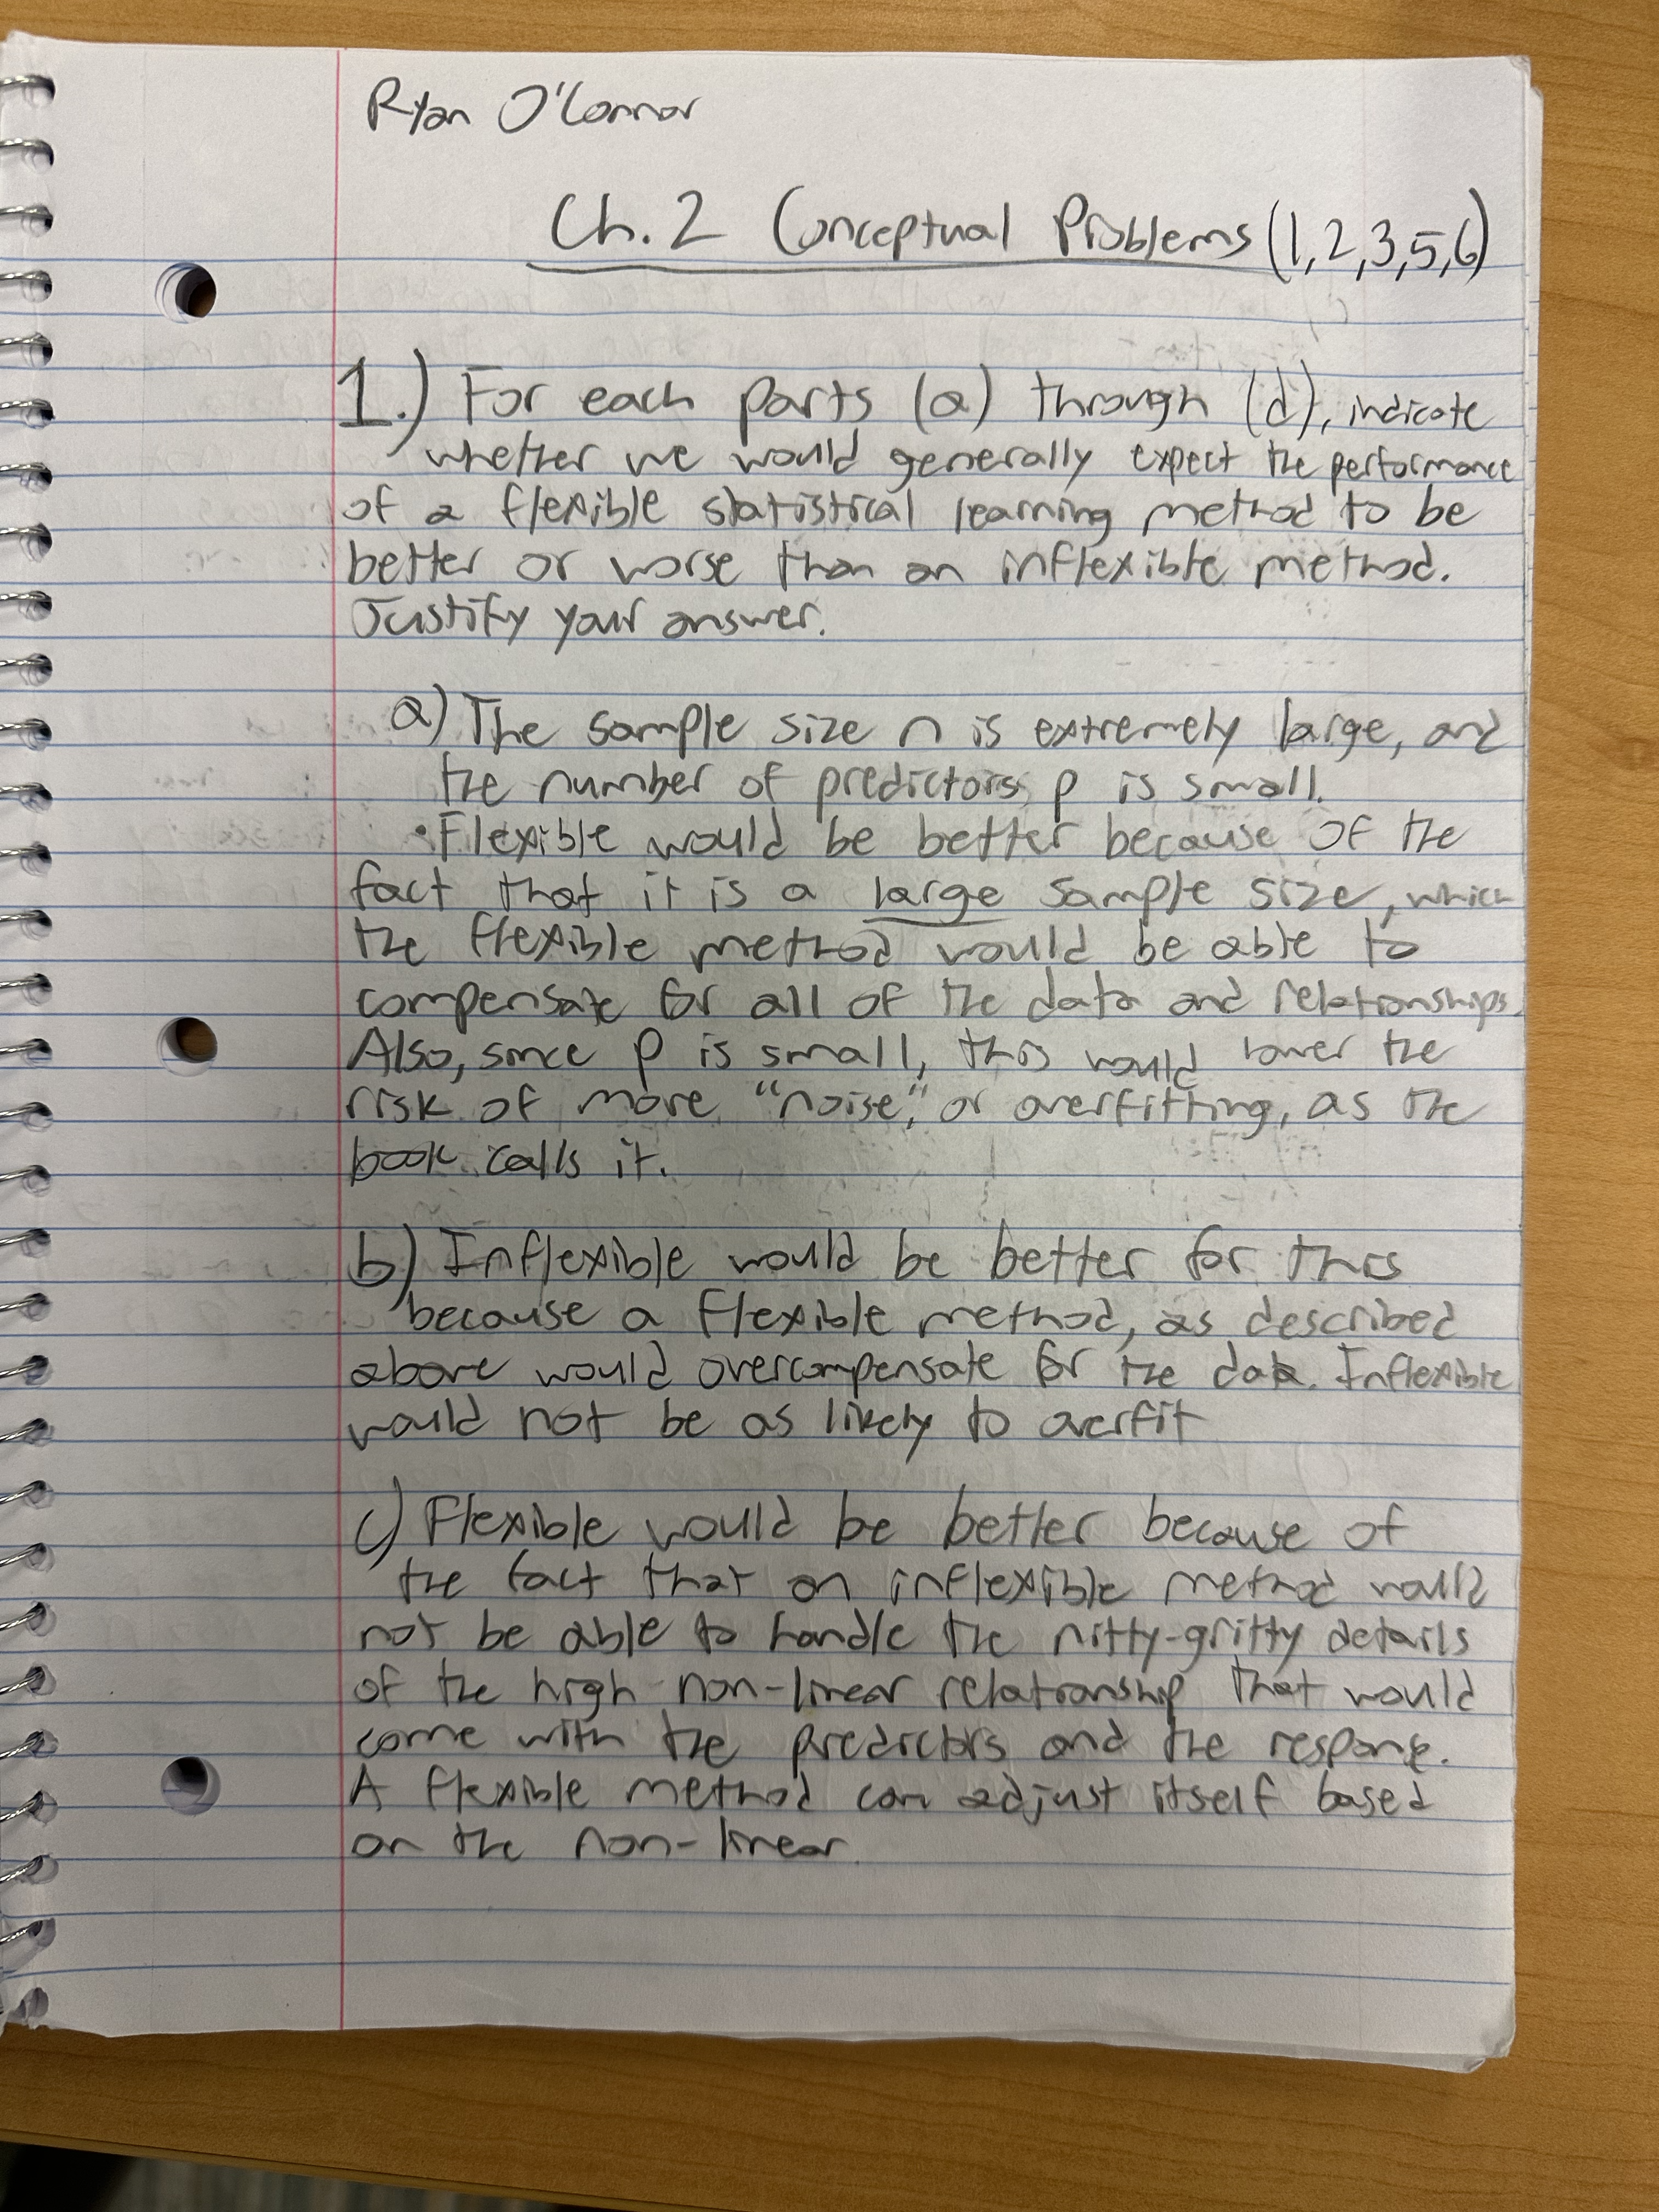 Ryan O'Connor
Ch. 2 Conceptual Problems (1,2,3,5,6)
1.) For each parts (a) through (d), indicate
whether we would generally expect the performance
of a flexible statistical learning method to be
better or worse than an inflexible method.
Justify your answer.
a) The sample size n is extremely large, and
the number of predictors p is small.
• Flexible would be better because of the
fact that it is a large sample size, which
the flexible method would be able to
compensate for all of the data and relationships.
Also, since p is small, this would lower the
risk of more "noise," or overfitting, as the
book calls it.
b) Inflexible would be better for this
because a flexible method, as described
above would overcompensate for the data. Inflexible
would not be as likely to overfit
c) Flexible would be better because of
the fact that an inflexible method would
not be able to handle the nitty-gritty details
of the high non-linear relationship that would
come with the predictors and the response.
A flexible method can adjust itself based
on the non-linear.